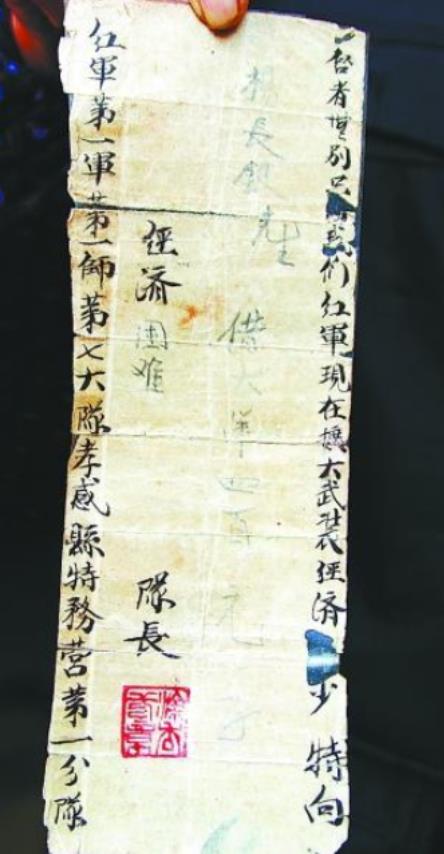 启者無别只我们红軍現在擴大武裝经济少特向
楊長銀先生 借大洋四百元
经济困难 隊長
红軍第一軍第一師第七大隊孝感縣特務营第一分隊